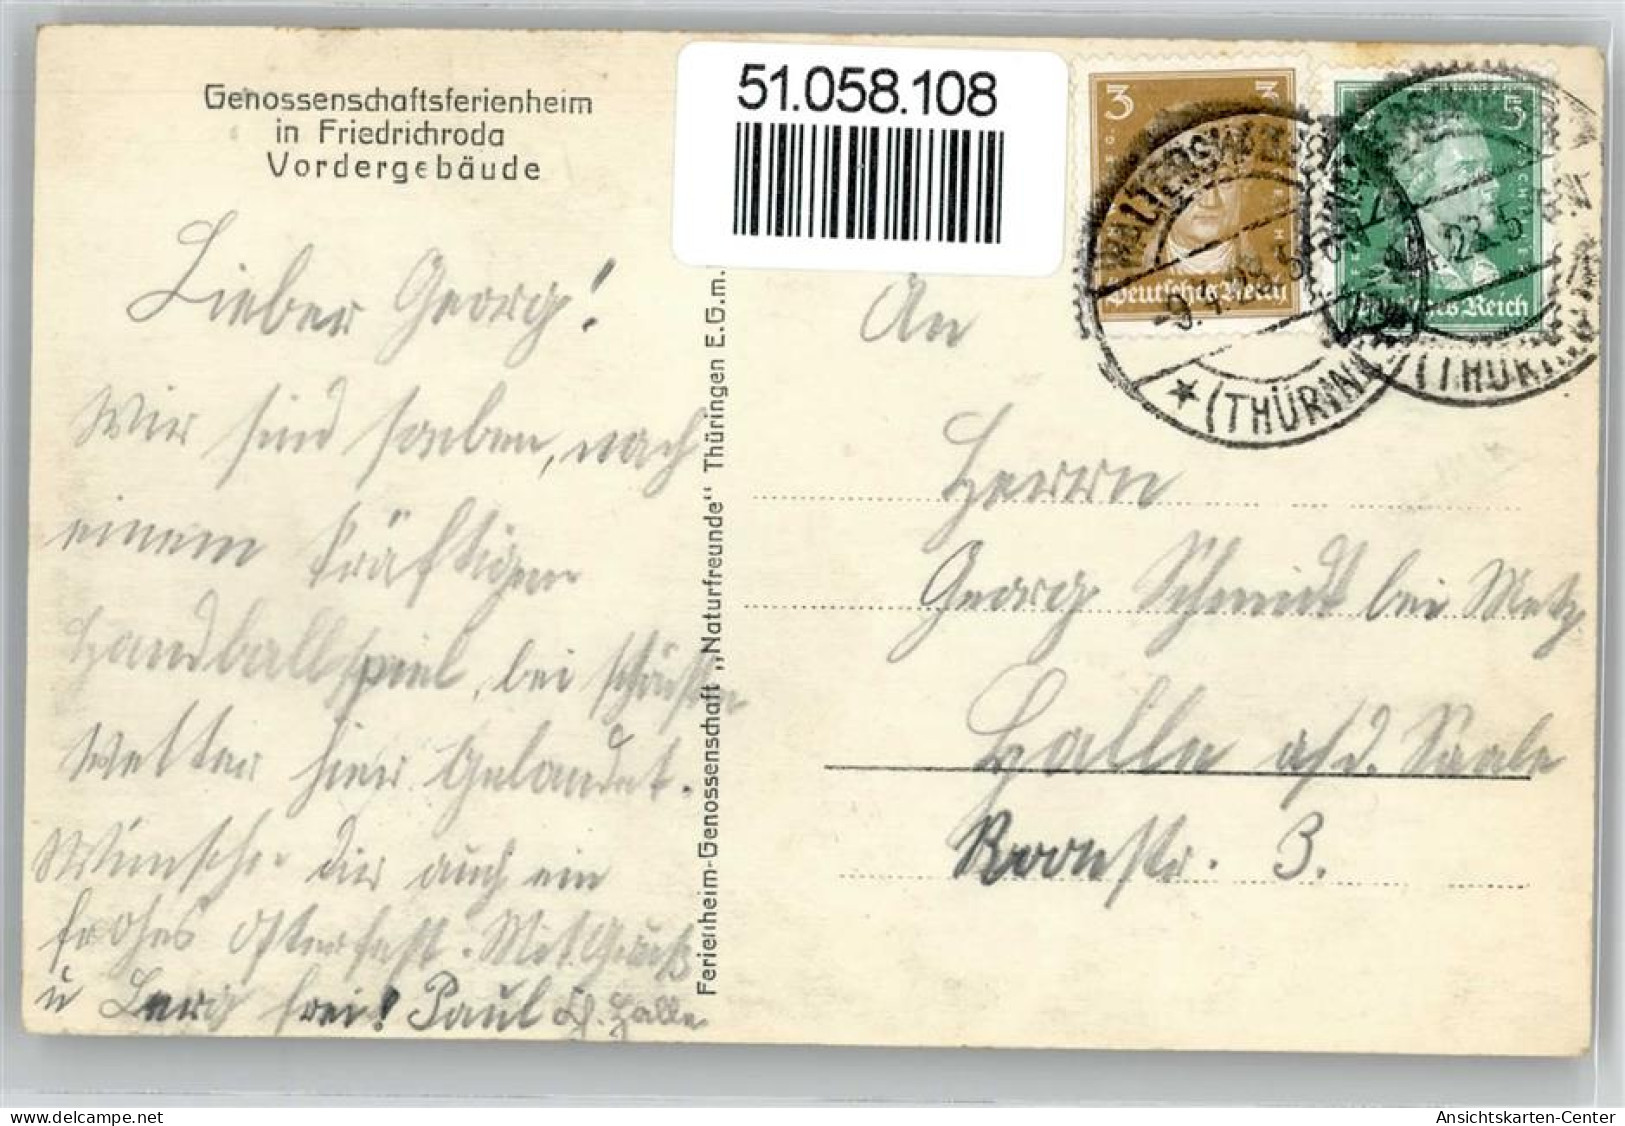 Genossenschaftsferienheim
in Friedrichroda
Vordergebäude
51.058.108
Lieber Georg!
Wir sind soeben, nach
einem kräftigen
Handballspiel, bei schönsten
Wetter hier gelandet.
Wünsche dir auch ein
frohes Osterfest. Mit Gruß
u Berg frei! Paul Sch. Halle
Ferienheim-Genossenschaft „Naturfreunde" Thüringen E.G.m.
3 3
Deutsches Reich
5
Deutsches Reich
WALTERSHAUSEN
(THÜRING
28.5
(THÜR
An
Herrn
Georg Schmidt bei Metz
Halle a/d. Saale
Roonstr. 3.
akpool.de
Ansichtskarten-Center